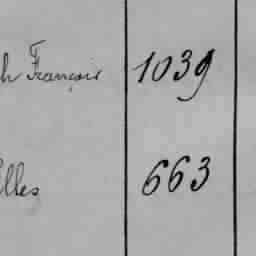 h François 1039
lles 663